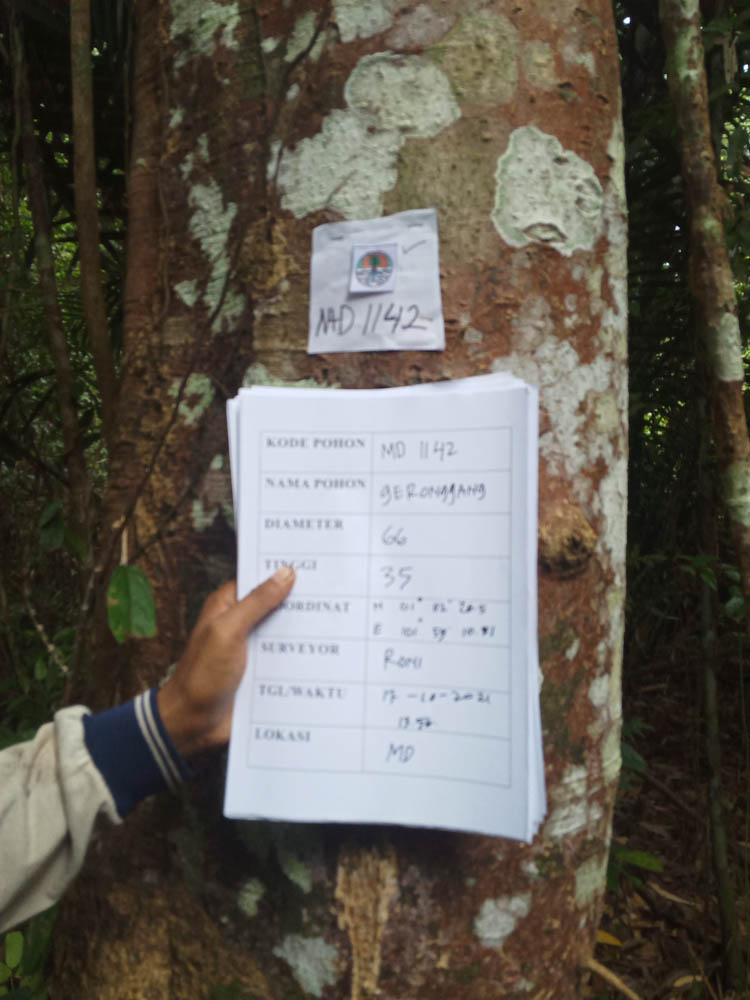 MD 1142
KODE POHON MD 1142
NAMA POHON gERONggANg
DIAMETER 66
TINGGI 35
KOORDINAT N 01° 02' 20.5
E 101° 59' 10.51
SURVEYOR ROMI
TGL/WAKTU 17-10-2021
13.57
LOKASI MD